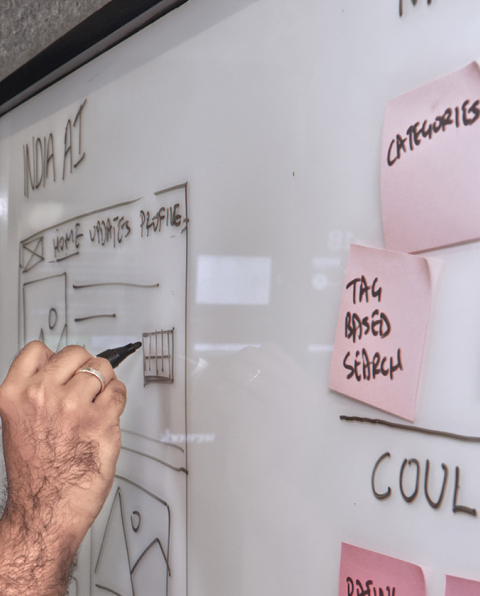 INDIA AI
HOME UPDATES PROFILE
CATEGORIES
TAG
BASED
SEARCH
COUL